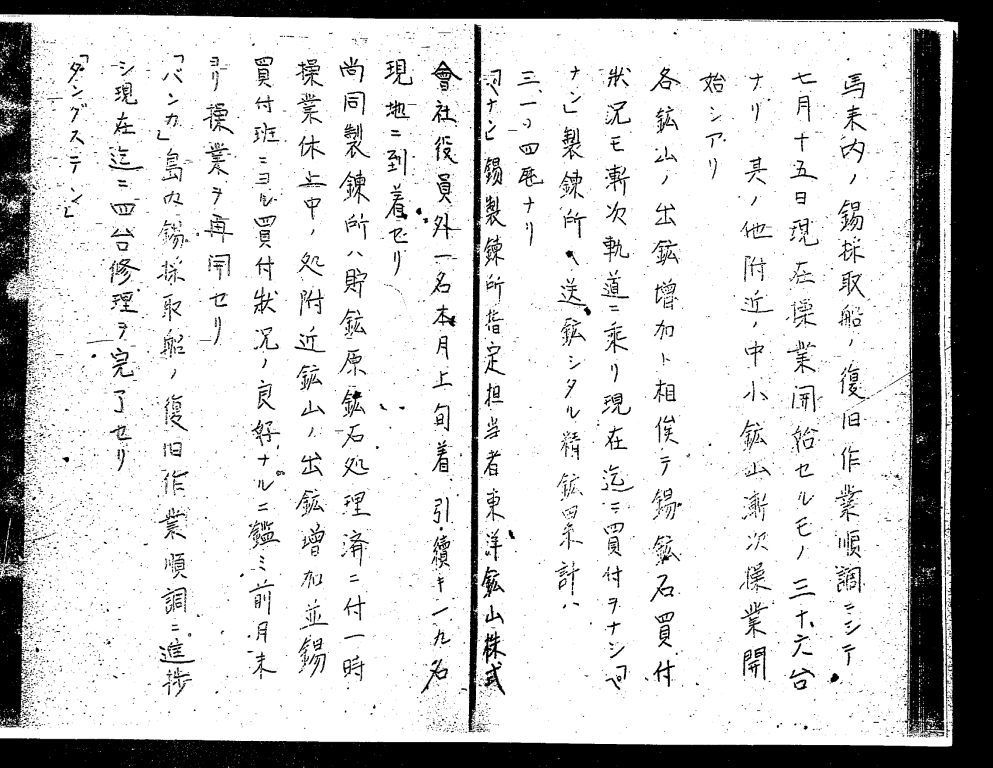 馬来内ノ錫採取船ノ復旧作業順調ニシテ
七月十五日現在操業開始セルモノ三十六台
ナリ其ノ他附近ノ中小鉱山漸次操業開
始シアリ
各鉱山ノ出鉱増加ト相俟テ錫鉱石買付
状況モ漸次軌道ニ乗リ現在迄ニ買付ヲナシ「ペ
ナン」製錬所ヘ送鉱シタル精鉱四累計ハ
三、一〇四瓲ナリ
「ペナン」錫製錬所指定担当者東洋鉱山株式
會社役員外一名本月上旬着引續キ一九名
現地ニ到着セリ
尚同製錬所ハ貯鉱原鉱石処理済ニ付一時
操業休止中ノ処附近鉱山ノ出鉱増加並錫
買付班ニヨル買付状況ノ良好ナルニ鑑ミ前月末
ヨリ操業ヲ再開セリ
「バンカ」島内錫採取船ノ復旧作業順調ニ進捗
シ現在迄ニ四台修理ヲ完了セリ
「タングステン」